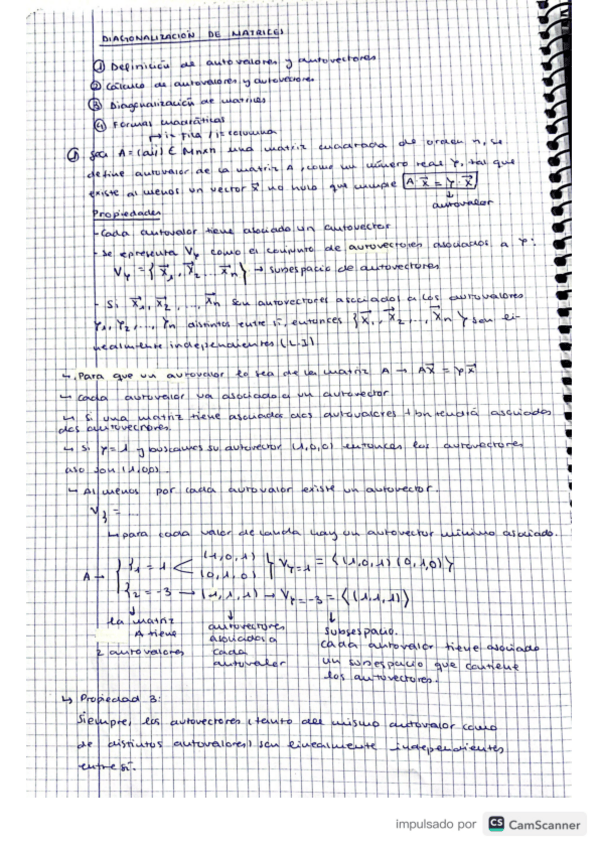 DIAGONALIZACIÓN DE MATRICES
① Definición de autovalores y autovectores
② Cálculo de autovalores y autovectores
③ Diagonalización de matrices
④ Formas cuadráticas
↦ i = fila / j = columna
① Sea A = (aij) ∈ Mnxn una matriz cuadrada de orden n, se
define autovalor de la matriz A, como un número real γ, tal que
existe al menos un vector x⃗ no nulo que cumple A·x⃗ = γ·x⃗
↓
autovalor
Propiedades
- Cada autovalor tiene asociado un autovector
- Se epresenta Vγ como el conjunto de autovectores asociados a γ:
Vγ = {x⃗1, x⃗2 ... x⃗n} → subespacio de autovectores
- Si x⃗1, x⃗2, ..., x⃗n son autovectores asociados a los autovalores
γ1, γ2, ..., γn distintos entre sí, entonces {x⃗1, x⃗2, ..., x⃗n} son li-
nealmente independientes (L.I)
↳ Para que un autovalor lo sea de la matriz A → Ax⃗ = γx⃗
↳ Cada autovalor va asociado a un autovector
↳ Si una matriz tiene asociada dos autovalores tbn tendrá asociados
dos autovectores.
↳ Si γ=1 y buscamos su autovector (1,0,0) entonces los autovectores
aso son (1,0,0).
↳ Al menos por cada autovalor existe un autovector.
V} = ...
↳ para cada valor de landa hay un autovector mínimo asociado.
(1,0,1)
A → { γ1 = 1 < } Vγ=1 = ⟨(1,0,1) (0,1,0)⟩
(0,1,0)
γ2 = -3 → (1,1,1) → Vγ=-3 = ⟨(1,1,1)⟩
↓ ↓ ↓
la matriz autovectores subsespacio.
A tiene asociados a cada autovalor tiene asociado
2 autovalores cada un subespacio que contiene
autovalor los autovectores.
↳ Propiedad 3:
Siempre, los autovectores (tanto del mismo autovalor como
de distintos autovalores) son linealmente independientes
entre sí.
impulsado por CS CamScanner